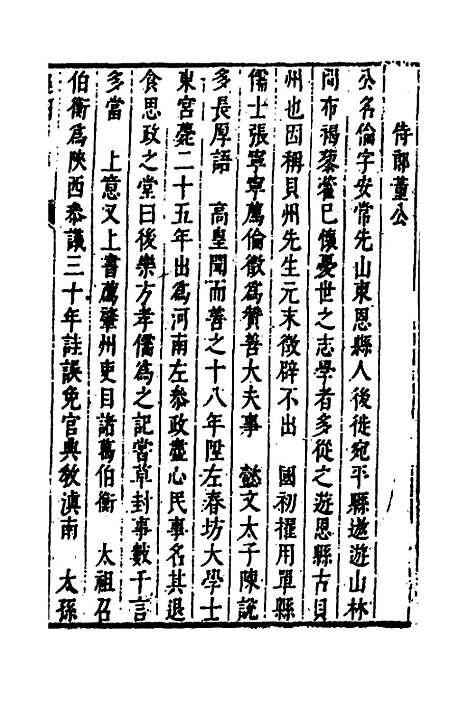 侍郎董公
公名倫字安常先山東恩縣人後徙宛平縣遨遊山林
間布褐藜藿已懷憂世之志學者多從之遊恩縣古貝
州也因稱貝州先生元末徴辟不出 國初擢用單縣
儒士張寧寧薦倫徴爲賛善大夫事 懿文太子陳說
多長厚語 高皇聞而善之十八年陞左春坊大學士
東宮薨二十五年出爲河南左叅政盡心民事名其退
食思政之堂曰後樂方孝儒爲之記嘗草封事數千言
多當 上意又上書薦肇州吏目諸葛伯衡 太祖召
伯衡爲陜西叅議三十年詿誤免官典敎滇南 太孫